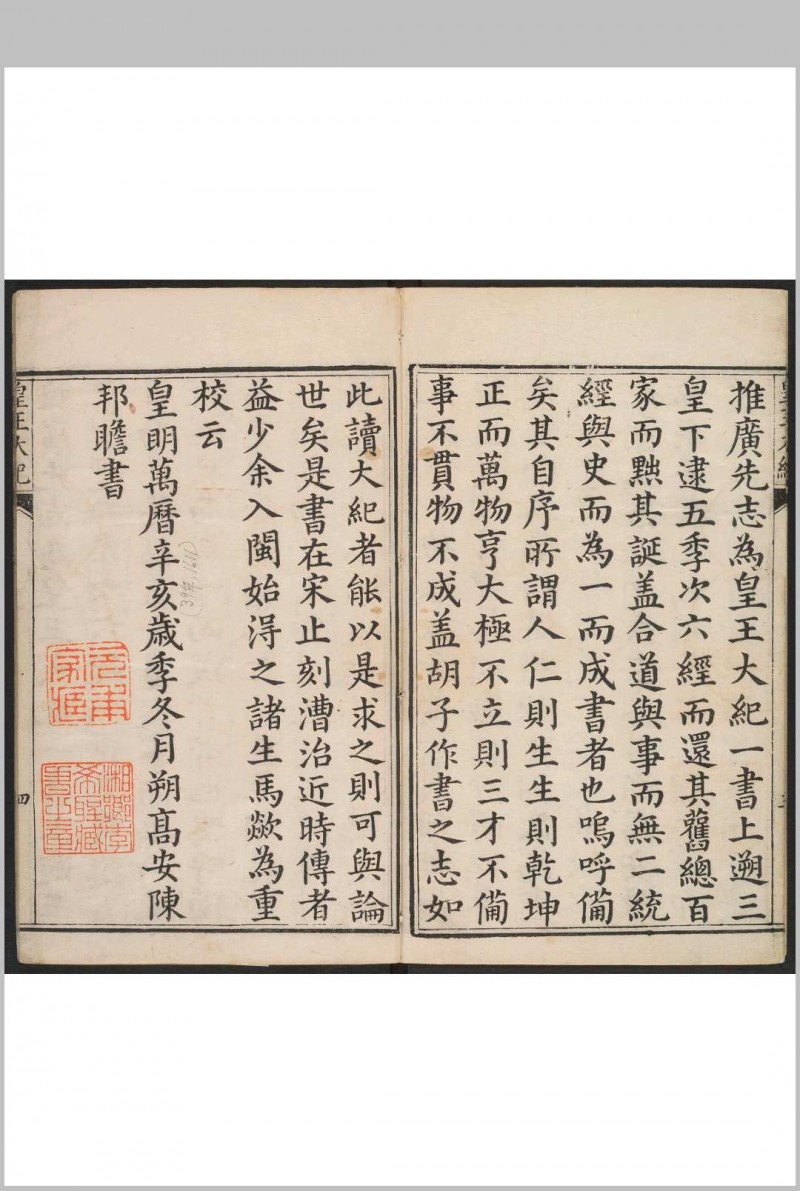 推廣先志為皇王大紀一書上遡三
皇下逮五季次六經而還其舊總百
家而黜其誕盖合道與事而無二統
經與史而為一而成書者也嗚呼備
矣其自序所謂人仁則生生則乾坤
正而萬物亨大極不立則三才不備
事不貫物不成盖胡子作書之志如
此讀大紀者能以是求之則可與論
世矣是書在宋止刻漕治近時傳者
益少余入閩始淂之諸生馬歘為重
校云
皇明萬曆辛亥歲季冬月朔髙安陳
邦瞻書
(39年 1611)
皇王大紀
四
湘鄉